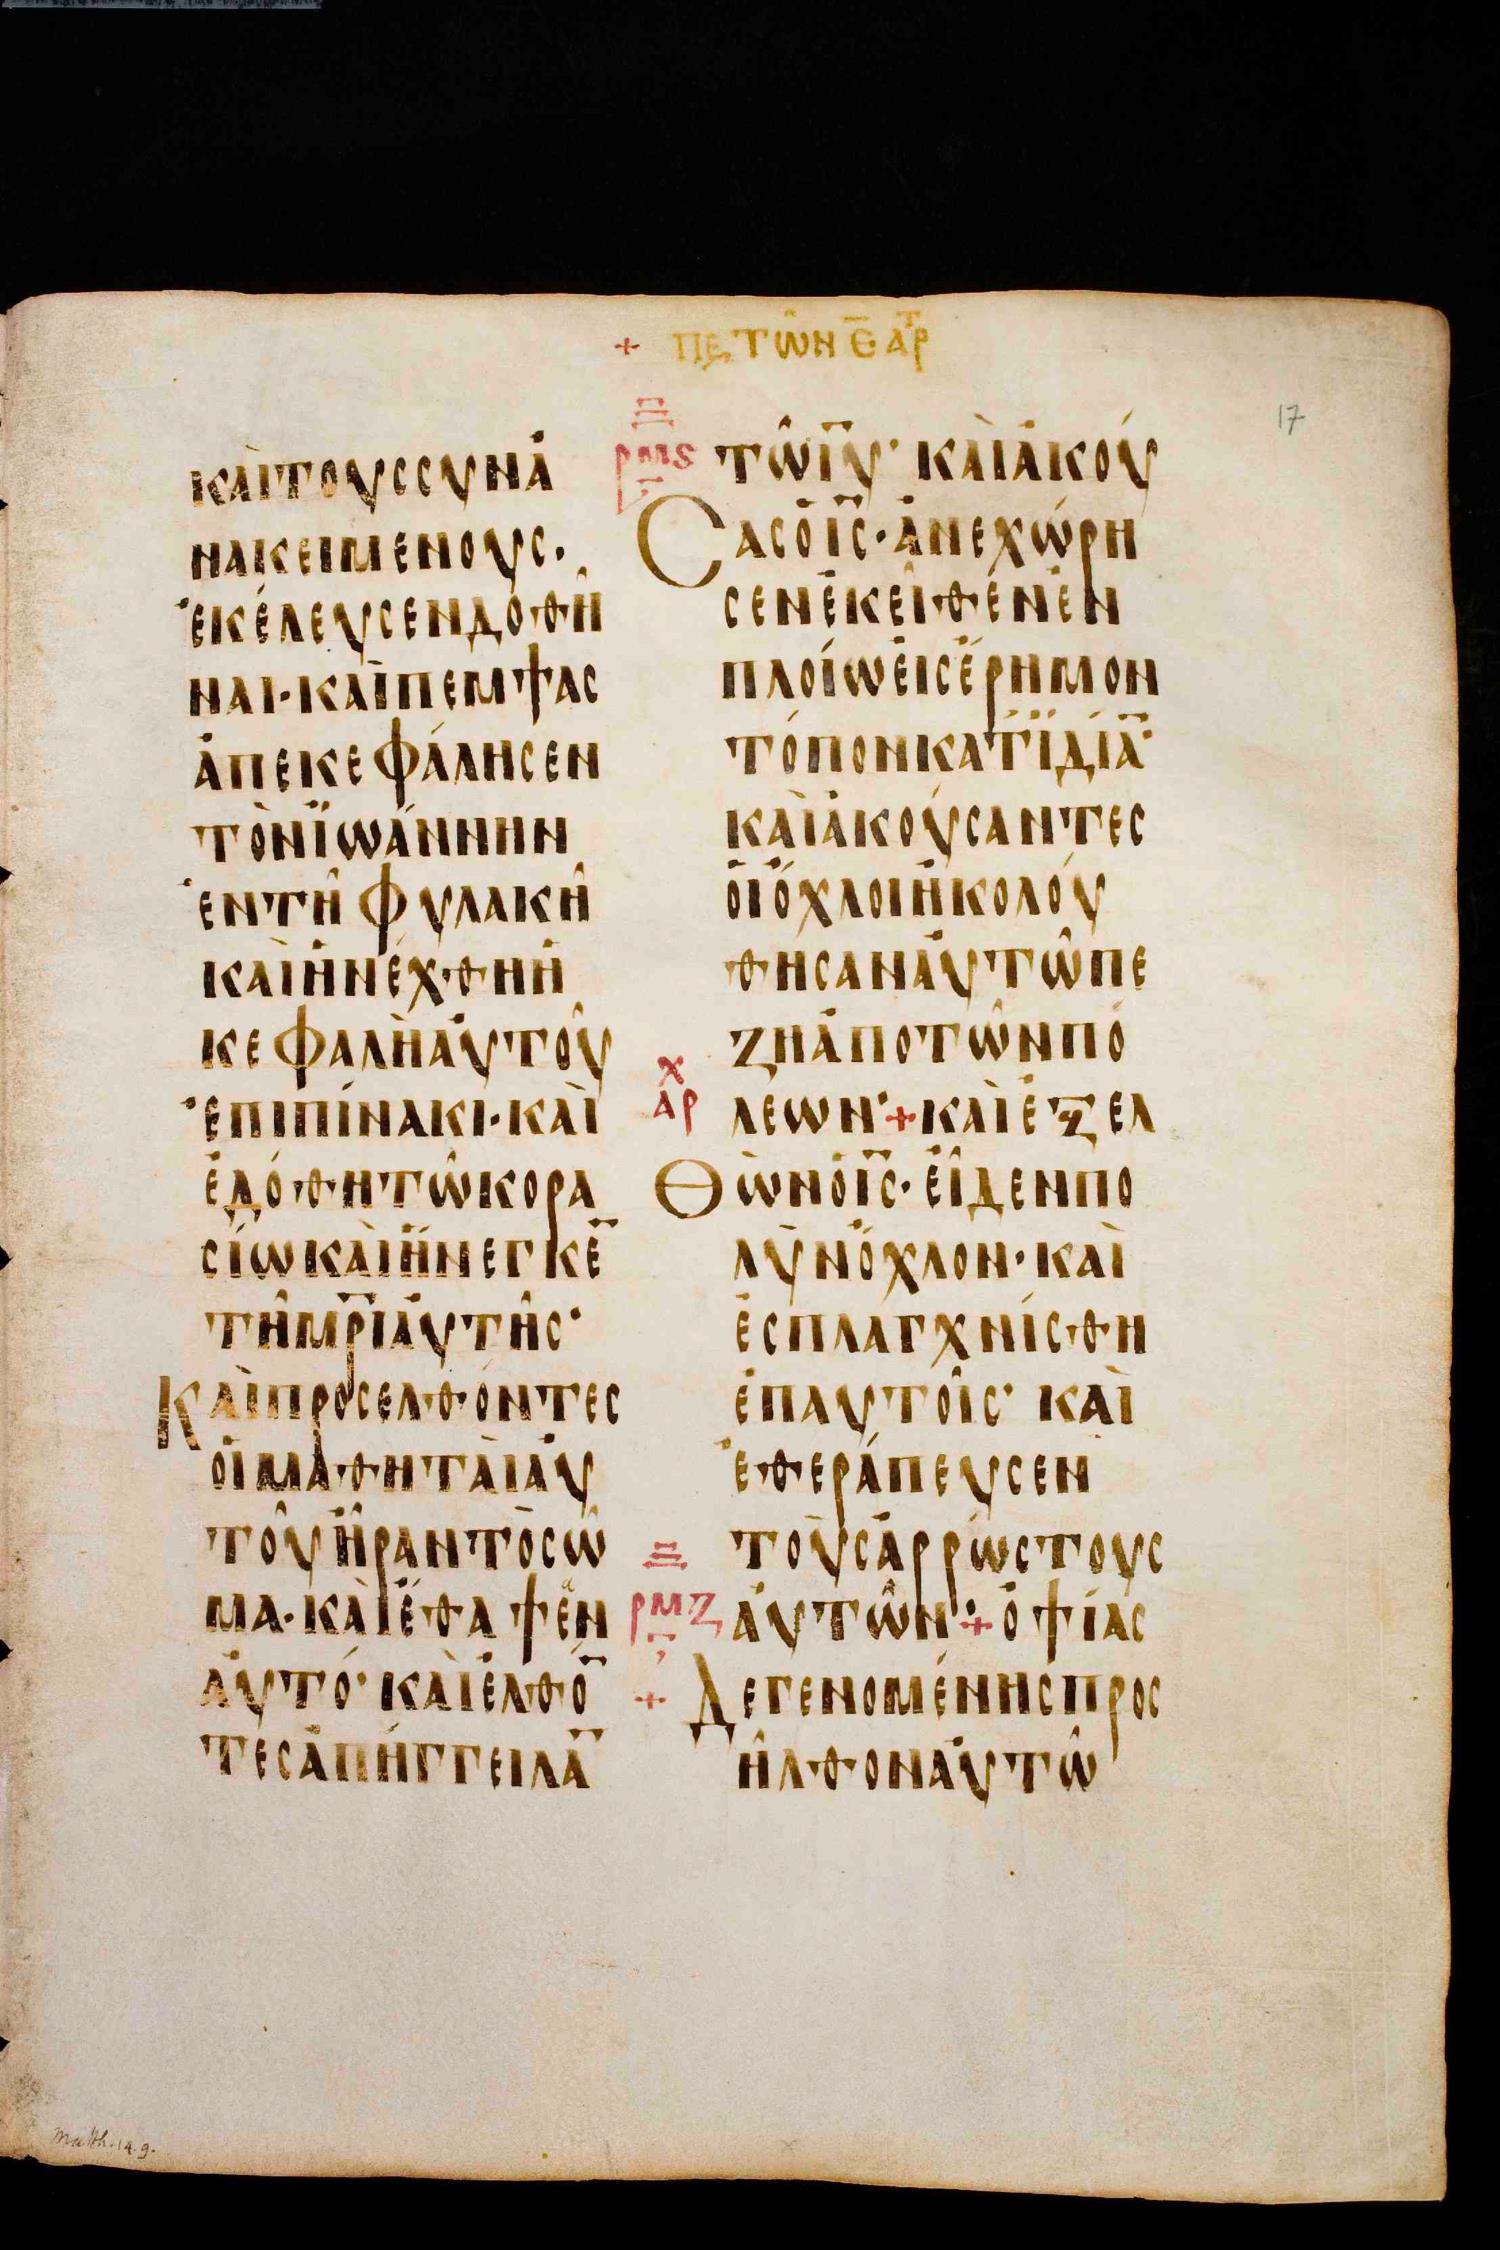 + ΠΕ ΤΩ͂Ν Ε̅ ΑΡ͞Τ
17
ΚΑῚ ΤΟΥϹ ϹΥΝΑ
ΝΑΚΕΙΜΕΝΟΥϹ·
ἘΚΈΛΕΥϹΕΝ ΔΟΘΗ͂
ΝΑΙ· ΚΑῚ ΠΕΜΨΑϹ
ἈΠΕΚΕΦΆΛΗϹΕΝ
ΤῸΝ ΪΩΆΝΝΗΝ
ἘΝ ΤΗ͂ ΦΥΛΑΚΗ͂
ΚΑῚ ἨΝΈΧΘΗ Ἡ
ΚΕΦΑΛῊ ἈΥΤΟΥ͂
ἘΠῚ ΠΊΝΑΚΙ· ΚΑῚ
ἘΔΌΘΗ ΤΩ͂ ΚΟΡΑ
ϹΊΩ ΚΑῚ ἬΝΕΓΚΕ̅
ΤΗ͂ ΜΡ̅Ι ἈΥΤΗ͂Ϲ·
ΚΑῚ ΠΡΟϹΕΛΘΌΝΤΕϹ
ὉΙ ΜΑΘΗΤᾺΙ ἈΥ
ΤΟΥ͂ ἮΡΑΝ ΤῸ ϹΩ͂
ΜΑ· ΚΑῚ ἜΘΑΨΕΝ
ἈΥΤΌ· ΚΑῚ ἘΛΘΌ̅
ΤΕϹ ἈΠΉΓΓΕΙΛΑ̅
Ξ̅
ΡΜϚ
Γ̅
ΤΩ͂ ΙΥ̅· ΚΑῚ ἈΚΟΎ
ϹΑϹ Ὁ ΙϹ̅· ἈΝΕΧΏΡΗ
ϹΕΝ ἘΚΕΙ͂ΘΕΝ ἘΝ
ΠΛΟΊΩ ἘΙϹ ἜΡΗΜΟΝ
ΤΌΠΟΝ ΚΑΤ ΪΔΊΑ̅·
ΚΑῚ ἈΚΟΎϹΑΝΤΕϹ
ὉΙ ὌΧΛΟΙ ἨΚΟΛΟΎ
ΘΗϹΑΝ ἈΥΤΩ͂ ΠΕ
ΖΗ ἈΠΟ ΤΩ͂Ν ΠΌ
Χ
ΑΡ
ΛΕΩΝ·+ΚΑῚ ἘΞΕΛ
ΘῺΝ Ὁ ΙϹ̅· ἘΙ͂ΔΕΝ ΠΟ
ΛῪΝ ὌΧΛΟΝ· ΚΑῚ
ἘϹΠΛΑΓΧΝΊϹΘΗ
ἘΠ ΑΥΤΟΙ͂Ϲ· ΚΑῚ
ἘΘΕΡΆΠΕΥϹΕΝ
Ξ̅
ΤΟῪϹ ἈΡΡΏϹΤΟΥϹ
ΡΜΖ
Γ̅
ἈΥΤΩ͂Ν·+ὈΨΊΑϹ
+ ΔΕ ΓΕΝΟΜΈΝΗϹ ΠΡΟϹ
Η͂ΛΘΟΝ ἈΥΤΩ͂
Matth. 14. 9.